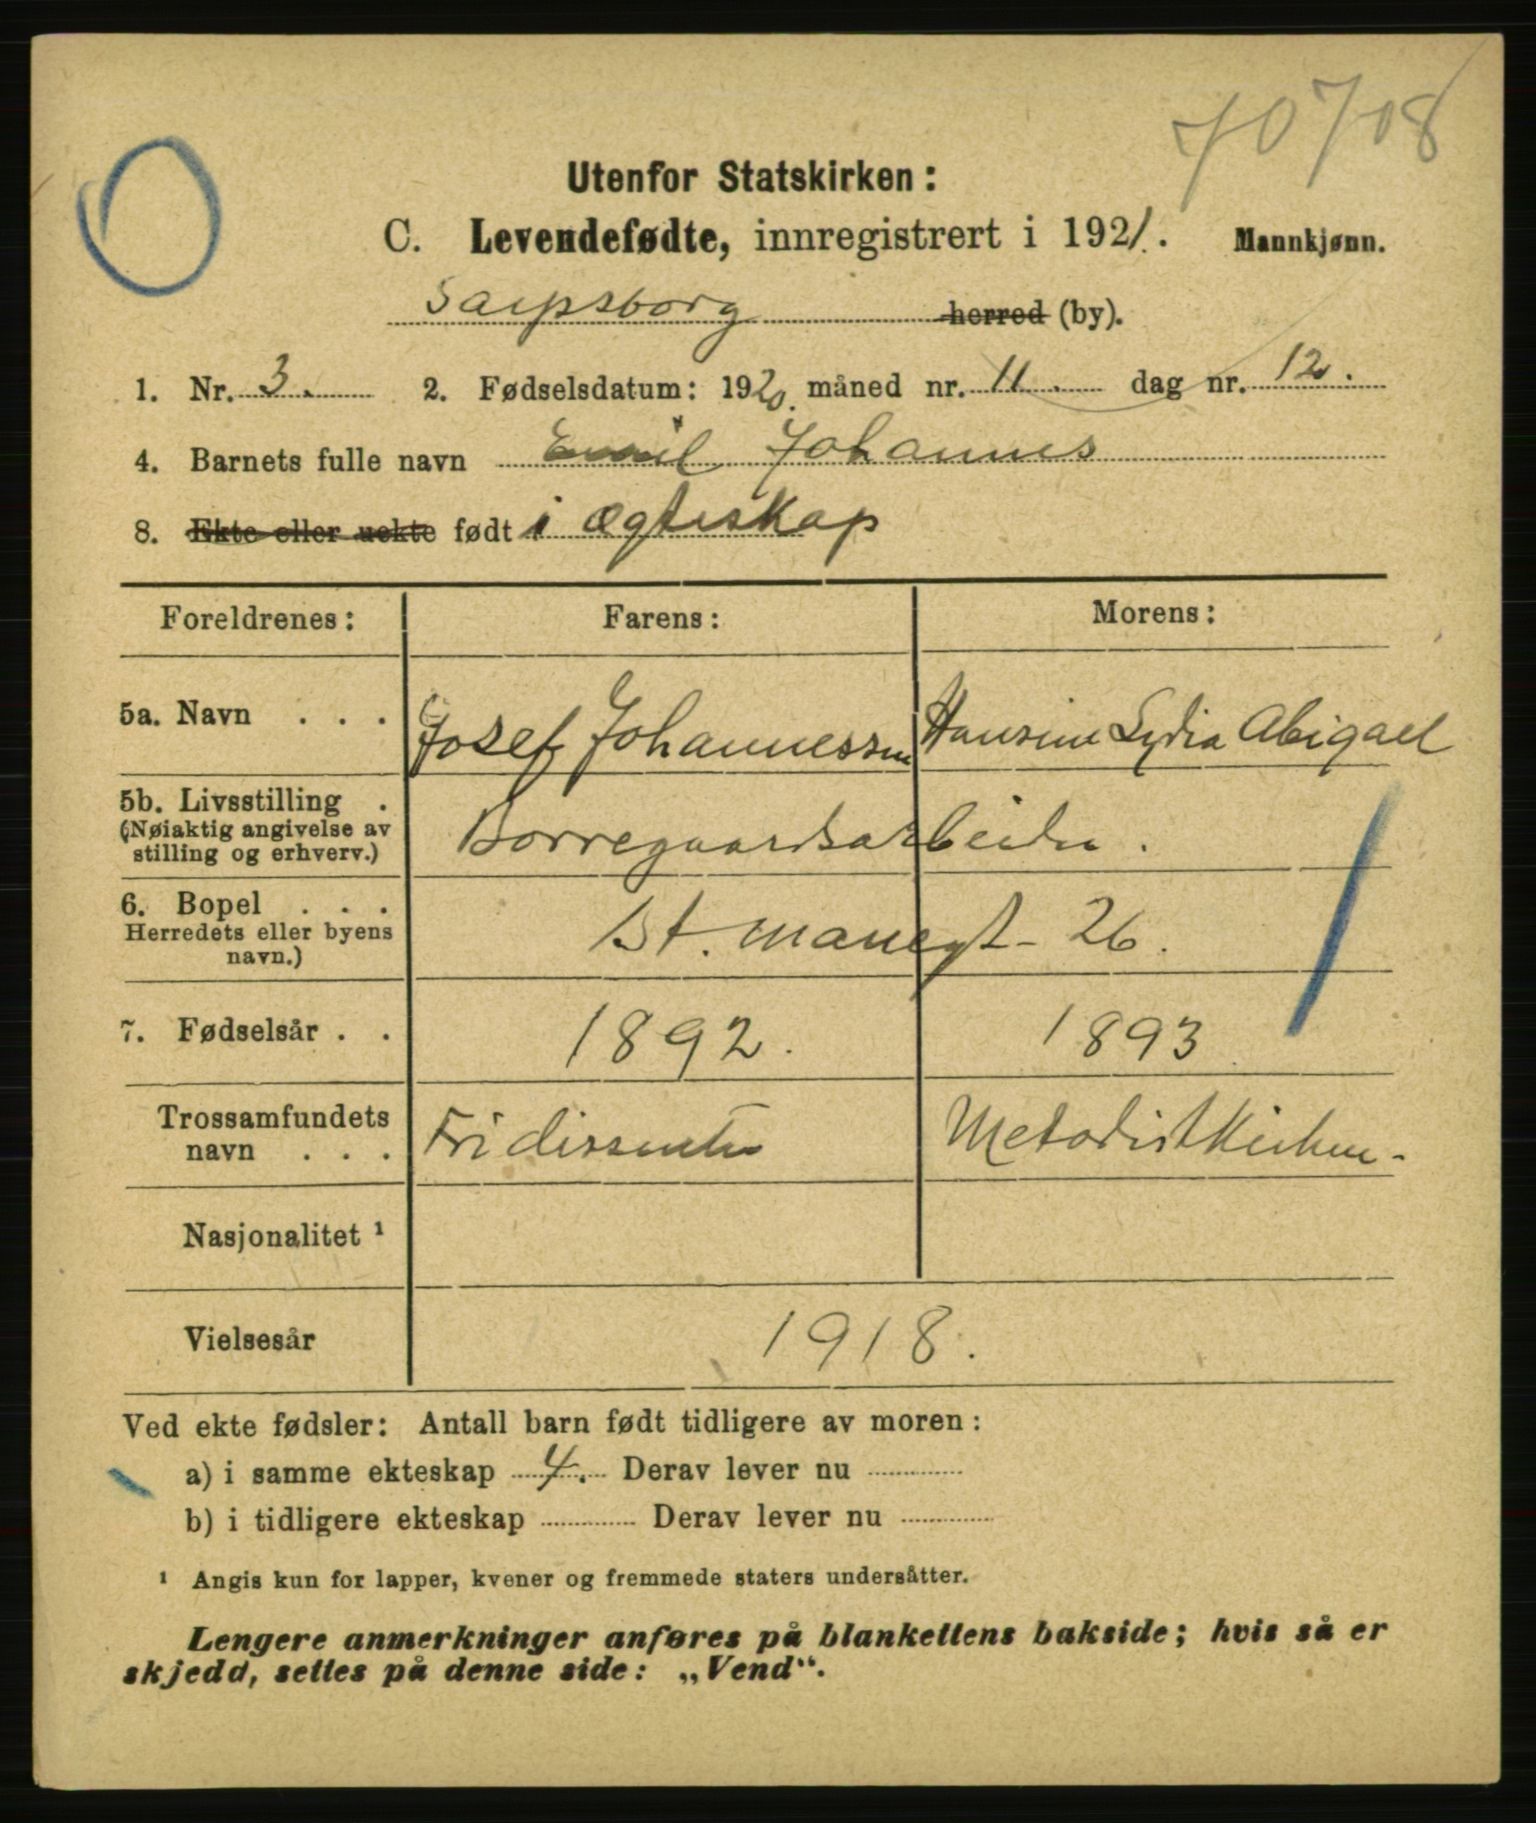 70708
Utenfor Statskirken:
C. Levendefødte, innregistrert i 1921. Mannkjønn.
Sarpsborg herred (by).
1. Nr. 3. 2. Fødselsdatum: 1920. måned nr. 11. dag nr. 12.
4. Barnets fulle navn Emil Johannes
8. Ekte eller uekte født i ægteskap
Foreldrenes: Farens: Morens:
5a. Navn . . . Josef Johannessen Hansine Lydia Abigael
5b. Livsstilling . Borregaardsarbeider.
(Nøiaktig angivelse av
stilling og erhverv.)
6. Bopel . . . St. mariegt- 26.
Herredets eller byens
navn.)
7. Fødselsår . . 1892. 1893
Trossamfundets Fri dissenter Metodistkirken-
navn . . .
Nasjonalitet ¹
Vielsesår 1918.
Ved ekte fødsler: Antall barn født tidligere av moren:
a) i samme ekteskap 4. Derav lever nu
b) i tidligere ekteskap Derav lever nu
¹ Angis kun for lapper, kvener og fremmede staters undersåtter.
Lengere anmerkninger anføres på blankettens bakside; hvis så er
skjedd, settes på denne side: „Vend“.